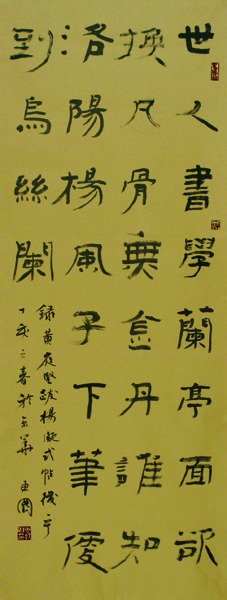 世人書學蘭亭面欲
換凡骨無金丹誰知
洛陽楊風子下筆便
到烏絲闌
錄黃庭堅跋楊凝式帖後于
丁亥之春於京華